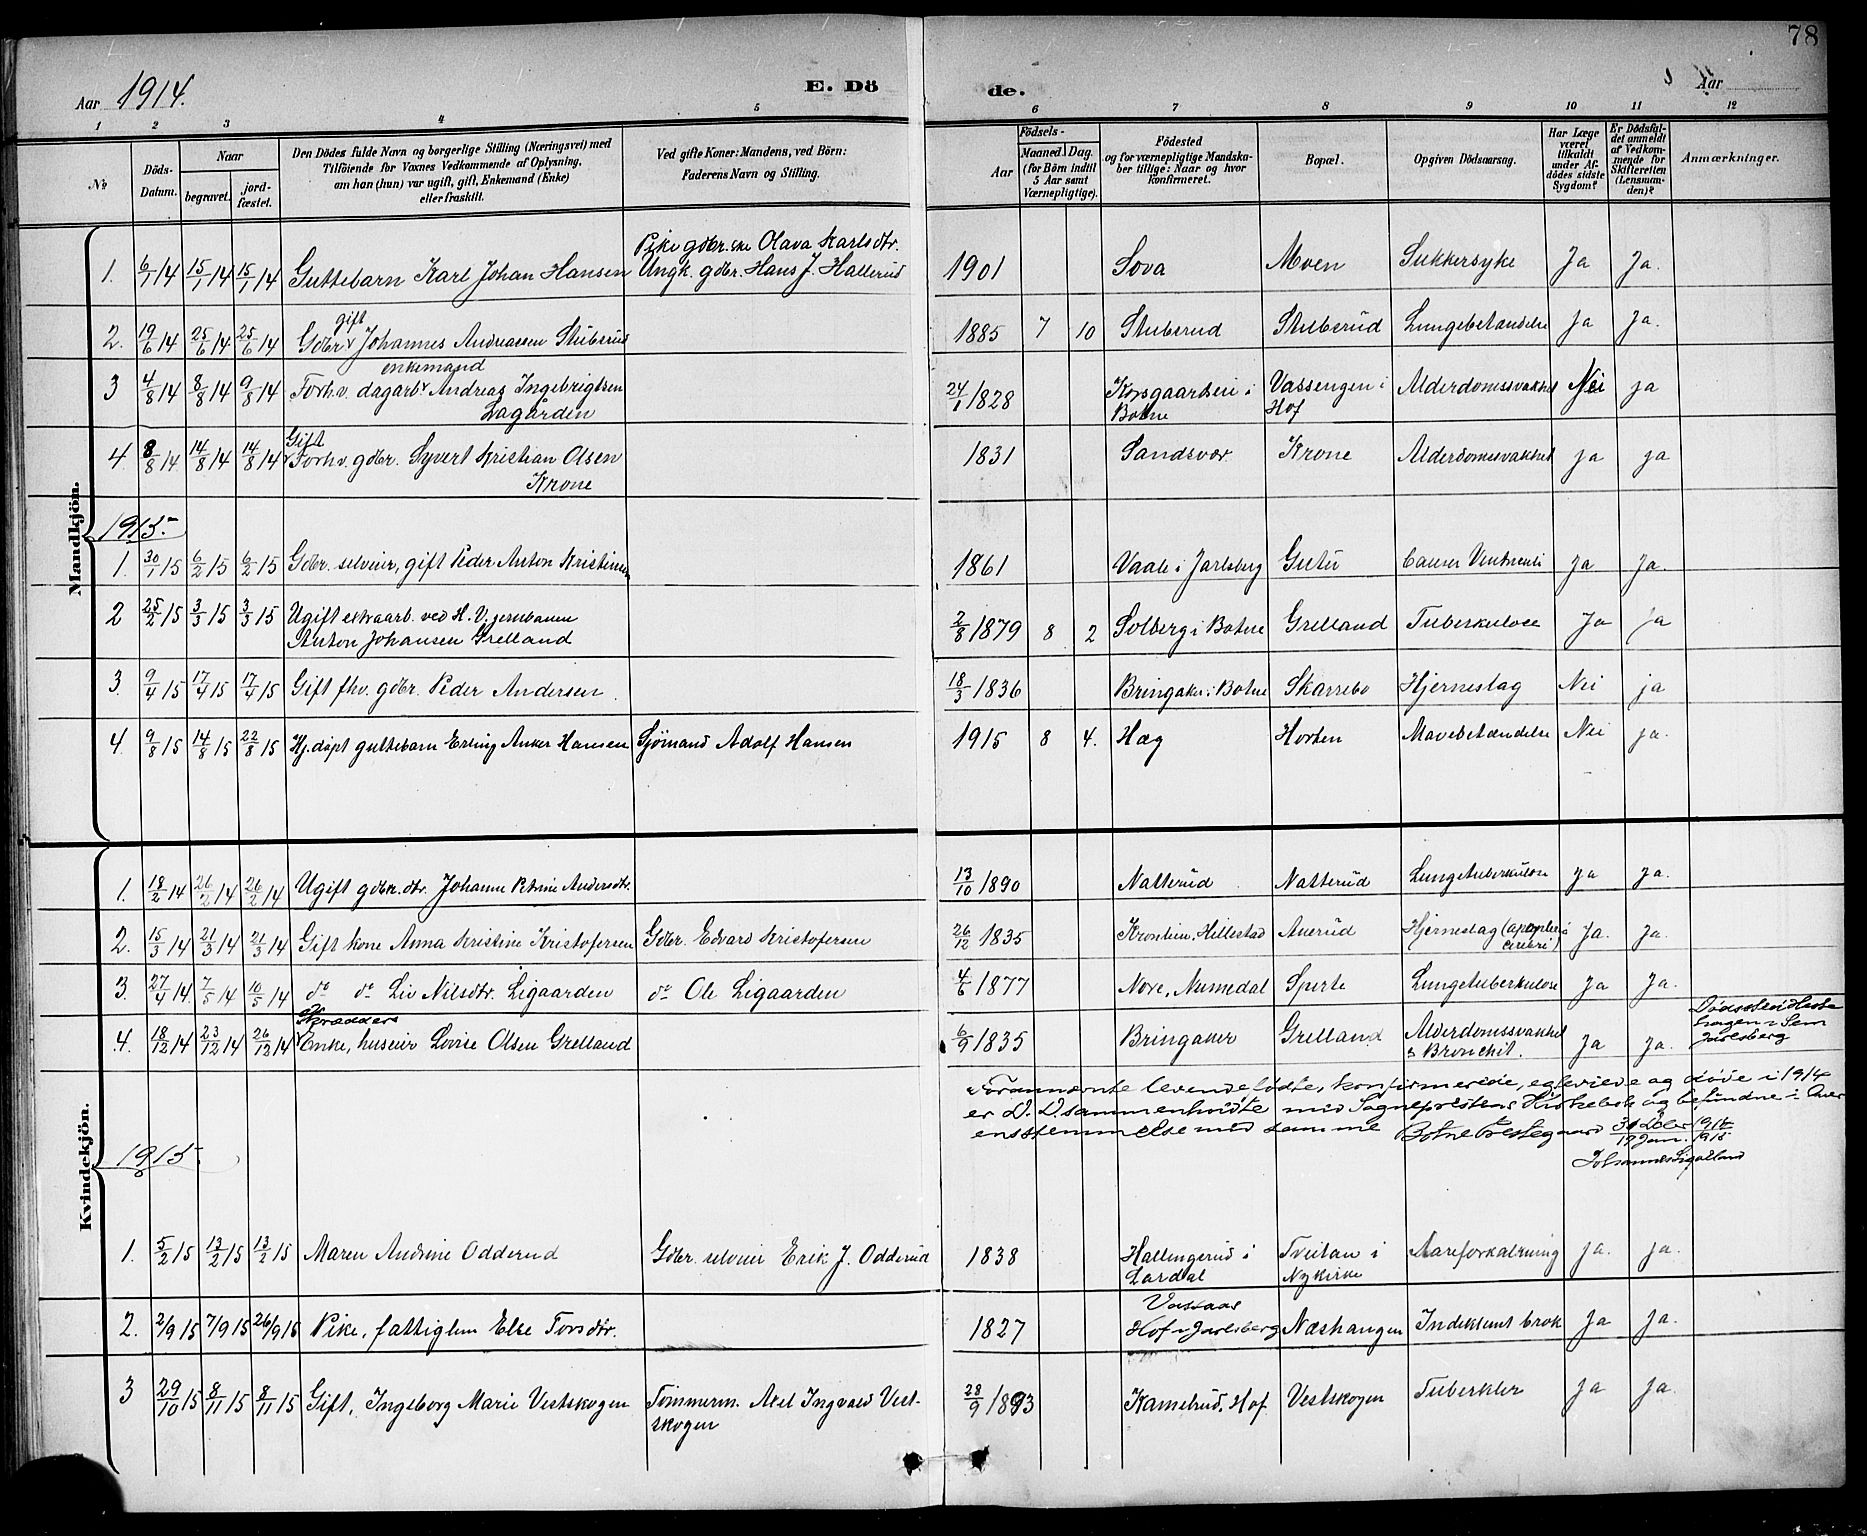 78
Aar 1914. E. Dö de. Aar
1 2 3 4 5 6 7 8 9 10 11 12
No
Döds-Datum.
Naar
begravet. jord-fæstet.
Den Dödes fulde Navn og borgerlige Stilling (Næringsvei) med
Tilföiende for Voxnes Vedkommende af Oplysning,
om han (hun) var ugift, gift, Enkemand (Enke)
eller fraskilt.
Ved gifte Koner: Mandens, ved Börn:
Faderens Navn og Stilling.
Födsels-
Aar Maaned. Dag.
(for Börn indtil
5 Aar samt
Værnepligtige).
Födested
og for værnepligtige Mandska-
ber tillige: Naar og hvor
konfirmeret.
Bopæl.
Opgiven Dödsaarsag.
Har Læge
været
tilkaldt
under Af-
dödes sidste
Sygdom?
Er Dödsfal-
det anmeldt
af Vedkom-
mende for
Skifteretten
(Lensman-
den)?
Anmærkninger.
Mandkjön.
Pike gdbr.ske Olava Karlsdtr.
1. 6/1 14 15/1 14 15/1 14 Guttebarn Karl Johan Hansen Ungk. gdbr. Hans J. Hallerud 1901 Sova Moen Sukkersyke Ja Ja.
gift
2. 19/6 14 25/6 14 25/6 14 Gdbr Johannes Andreassen Stubsrud 1885 7 10 Stubsrud Stubsrud Lungebetændelse Ja Ja.
enkemand
3 4/8 14 8/8 14 9/8 14 Forhv. dagarbr Andreas Ingebrigtsen 24/1 1828 Korsgaardsei i Vassengen i Alderdomssvakhet Nei ja
Lagården Botne Hof
Gift
4. 8/8 14 14/8 14 14/8 14 Forhv. gdbr. Syvert Kristian Olsen 1831 Sandsvær Krone Alderdomssvakhet ja ja
Krone
1915.
1. 30/1 15 6/2 15 6/2 15 Gdbr. selveier, gift Peder Anton Kristinsen 1861 Vaale i Jarlsberg Gutu Cancer Ventriculi Ja Ja.
2 25/2 15 3/3 15 3/3 15 Ugift extraarb. ved H. V. jernbanen
Anton Johansen Grelland 2/8 1879 8 2 Solberg i Botne Grelland Tuberkulose Ja Ja
3. 9/4 15 17/4 15 17/4 15 Gift fhv. gdbr. Peder Andersen. 18/3 1836 Bringaker i Botne Skarrebo Hjerneslag Nei ja
4. 9/8 15 14/8 15 22/8 15 Hj.døpt guttebarn Erling Anker Hansen Sjømand Adolf Hansen 1915 8 4. Hæg Horten Mavebetændelse Nei ja.
Kvindekjön.
1. 18/2 14 26/2 14 26/2 14 Ugift gdbr. dtr. Johanne Petrine Andersdtr. 13/10 1890 Natterud Natterud Lungetuberkulose ja Ja.
2. 15/3 14 21/3 14 21/3 14 Gift kone Anna Kristine Kristofersen Gdbr. Edvard Kristofersen 26/12 1835 Kronlien, Hillestad Auerud Hjerneslag (apoplexia Ja. Ja.
cerebri)
3. 27/4 14 7/5 14 10/5 14 do do Liv Nilsdtr. Ligaarden do Ole Ligaarden 4/6 1877 Nore, Numedal Sperte Lungetuberkulose Ja Ja.
Skrædders
4. 18/12 14 23/12 14 26/12 14 Enke, huseier Lovise Olsen Grelland 6/9 1835 Bringaker Grelland Alderdomssvakhet Ja Ja.
& Bronchit.
Dødssted: Heste
hagen i Sem
Jarlsberg
Forannævnte levendefødte, konfirmerede, egteviede og døde i 1914
er D. D. sammenholdte med Sogneprestens Kirkebok og befundne i Over
ensstemmelse med samme Botne Prestegaard 31 Decbr 1914
17 Jan. 1915
1915.
1. 5/2 15 13/2 15 13/2 15 Maren Andrine Odderud Gdbr. selveier Erik J. Odderud 1838 Hallingerud i Tveitan i Aareforkalkning ja. ja.
Lardal Nykirke
Vassaas
2. 2/9 15 7/9 15 26/9 15 Pike, fattiglem Else Torsdtr. 1827 Hof i Jarlsberg Næshaugen Indeklemt brok Ja Ja.
3 29/10 15 8/11 15 8/11 15 Gift, Ingeborg Marie Vestskogen Tømmerm. Axel Ingvald Vest- 28/9 1893 Kamelrud, Hof. Vestskogen Tuberkler Ja Ja.
skogen